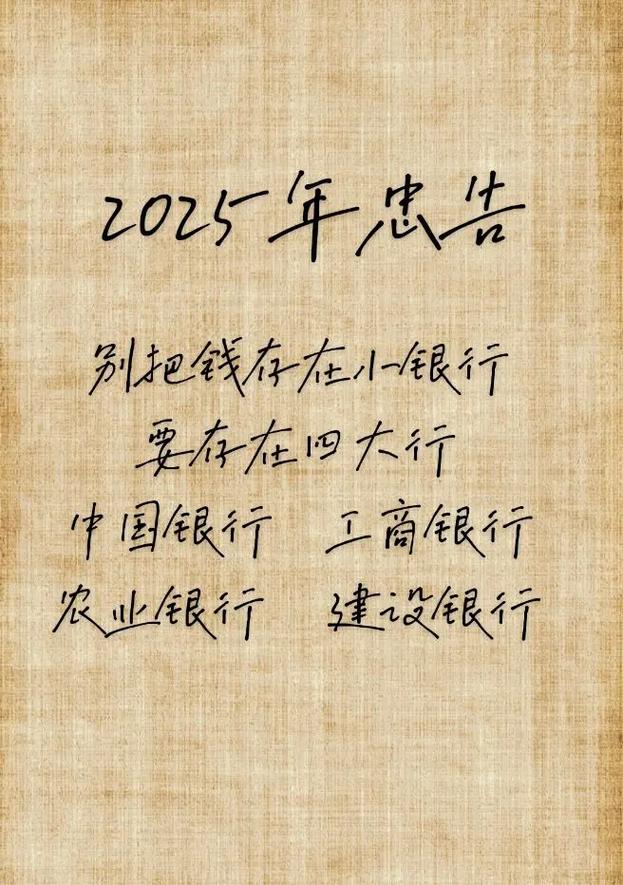 2025年忠告
别把钱存在小银行
要存在四大行
中国银行 工商银行
农业银行 建设银行